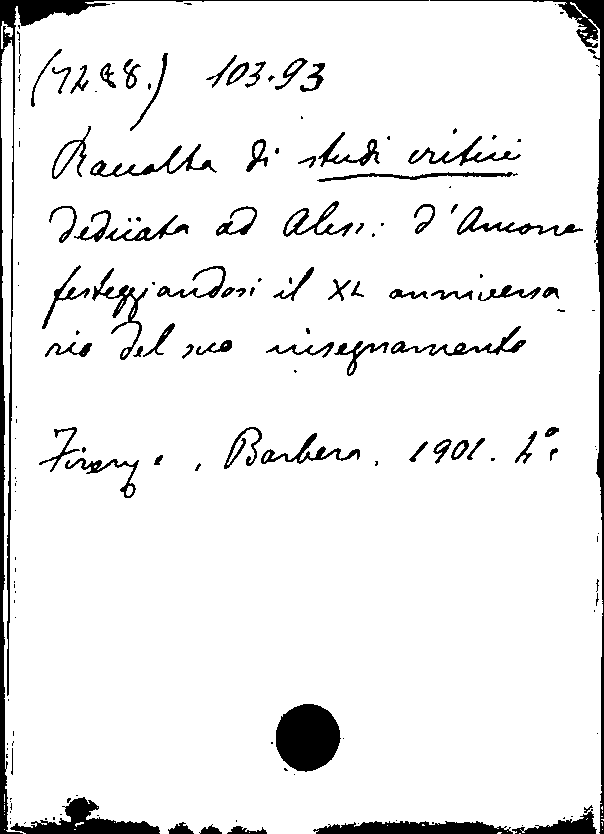 (7288.) 103.93
Raccolta di studi critici
dedicata ad Aless: d'Ancona
festeggiandosi il XL anniversa
rio del suo insegnamento
Firenze, Barbera. 1901. 4°.